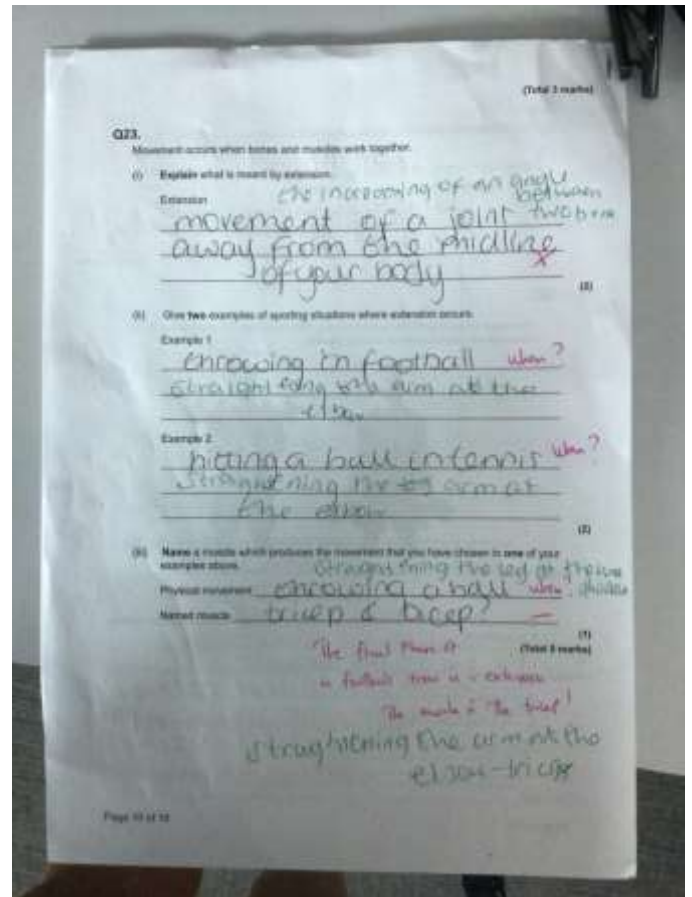 (Total 3 marks)
Q23.
Movement occurs when bones and muscles work together.
(i) Explain what is meant by extension.
the increasing of an angle
between
Extension
two bone
movement of a joint
away from the midline
of your body
(2)
(ii) Give two examples of sporting situations where extension occurs.
Example 1
throwing in football when?
straightening the arm at the
elbow
Example 2
hitting a ball in tennis when?
straightening the arm at
the elbow
(2)
(iii) Name a muscle which produces the movement that you have chosen in one of your
examples above.
straightening the leg at the
Physical movement throwing a ball when?
Named muscle tricep & bicep?
(1)
The final phase of
(Total 5 marks)
a football throw in - extension
The muscle is the tricep!
straghtening the arm at the
elbow-tricep
Page 10 of 18